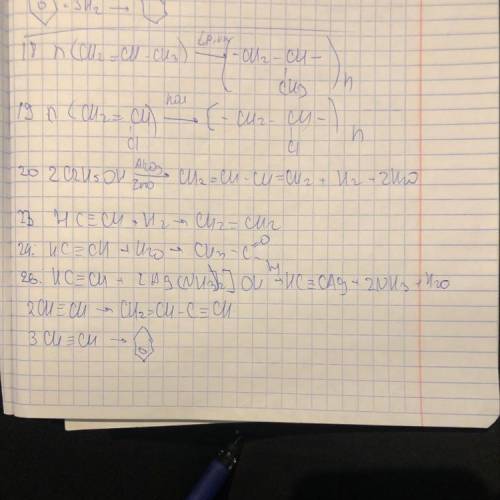 + 3H2 →
18 n(CH2=CH-CH3) → (-CH2-CH-)n
CH3
19 n(CH2=CH) → (-CH2-CH-)n
Cl Cl
20 2C2H5OH → CH2=CH-CH=CH2 + H2 + 2H2O
Al2O3
ZnO
23 HC≡CH + H2 → CH2=CH2
24. HC≡CH + H2O → CH3-C=O
H
26. HC≡CH + [Ag(NH3)2]OH → HC≡CAg + 2NH3 + H2O
2CH≡CH → CH2=CH-C≡CH
3CH≡CH →